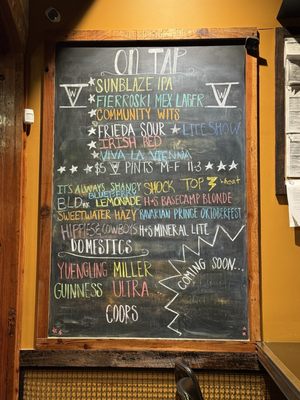 ON TAP
W SUNBLAZE IPA W
FIERROSKI MEX LAGER
COMMUNITY WITS
FRIEDA SOUR LITE SHOW
IRISH RED
VIVA LA VIENNA
$5 W PINTS M-F 11-3
ITS ALWAYS SHANGY SHOCK TOP wheat
B.L.D. BLUEBERRY LEMONADE H+S BASECAMP BLONDE
SWEETWATER HAZY BAVARIAN PRINCE OKTOBERFEST
HIPPIES & COWBOYS H+S MINERAL LITE
DOMESTICS
YUENGLING MILLER
GUINNESS ULTRA
COORS
COMING SOON...